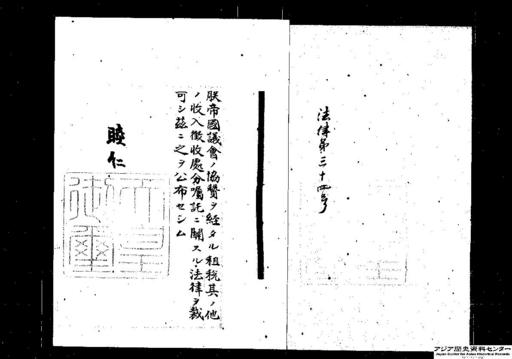 法律第三十四号
朕帝國議會ノ協賛ヲ經タル租税其ノ他
ノ收入徴收處分嘱託ニ關スル法律ヲ裁
可シ茲ニ之ヲ公布セシム
睦仁
天皇御璽
アジア歴史資料センター
Japan Center for Asian Historical Records